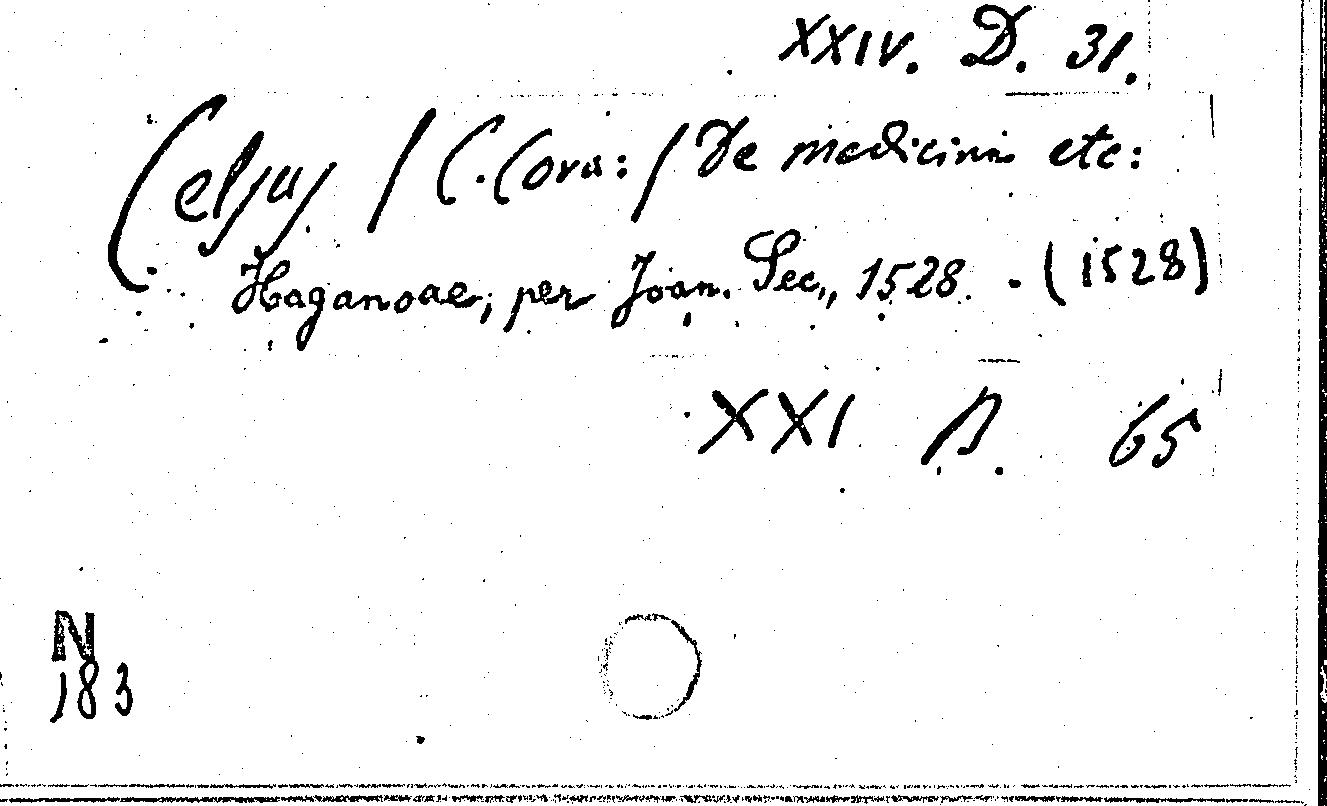 XXIV. D. 31.
Celsus / C. Corn: / De medicina etc:
Haganoae, per Joan. Sec., 1528. (1528)
XXI 65
N
183